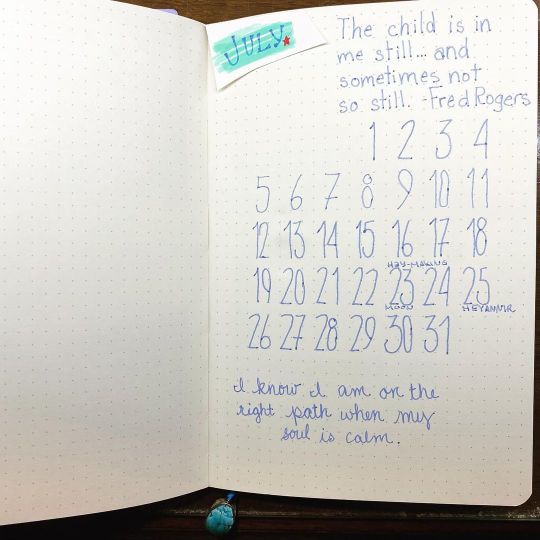 JULY
The child is in
me still... and
sometimes not
so still. -Fred Rogers
1 2 3 4
5 6 7 8 9 10 11
12 13 14 15 16 17 18
19 20 21 22 23 24 25
MOON
26 27 28 29 30 31
I know I am on the
right path when my
soul is calm.